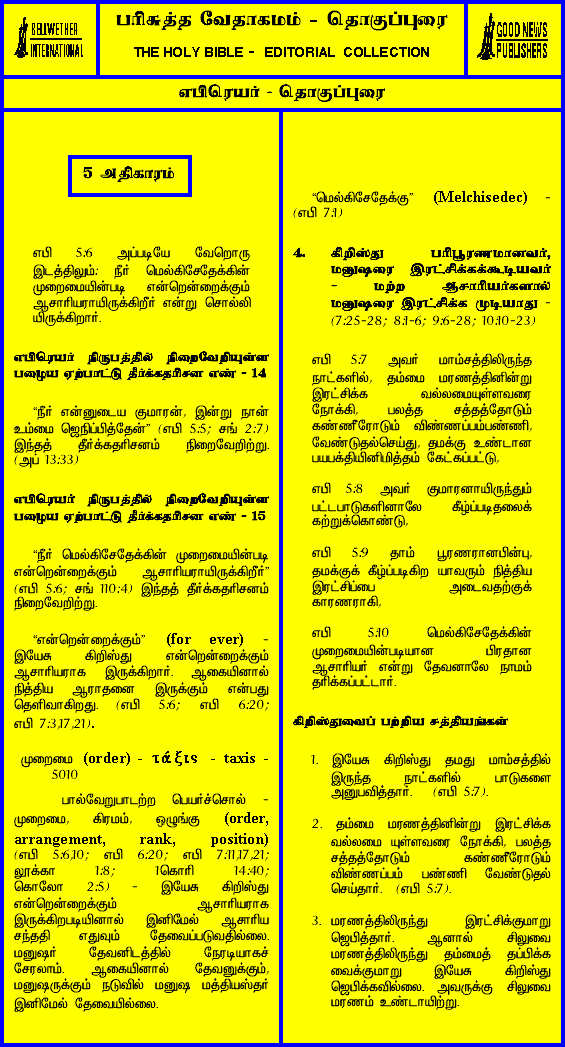 BELLWETHER
INTERNATIONAL
பரிசுத்த வேதாகமம் - தொகுப்புரை
THE HOLY BIBLE - EDITORIAL COLLECTION
GOOD NEWS
PUBLISHERS
எபிரெயர் - தொகுப்புரை
5 அதிகாரம்
எபி 5:6 அப்படியே வேறொரு
இடத்திலும்: நீர் மெல்கிசேதேக்கின்
முறைமையின்படி என்றென்றைக்கும்
ஆசாரியராயிருக்கிறீர் என்று சொல்லி
யிருக்கிறார்.
எபிரெயர் நிருபத்தில் நிறைவேறியுள்ள
பழைய ஏற்பாட்டு தீர்க்கதரிசன எண் - 14
“நீர் என்னுடைய குமாரன், இன்று நான்
உம்மை ஜெநிப்பித்தேன்” (எபி 5:5; சங் 2:7)
இந்தத் தீர்க்கதரிசனம் நிறைவேறிற்று.
(அப் 13:33)
எபிரெயர் நிருபத்தில் நிறைவேறியுள்ள
பழைய ஏற்பாட்டு தீர்க்கதரிசன எண் - 15
“நீர் மெல்கிசேதேக்கின் முறைமையின்படி
என்றென்றைக்கும் ஆசாரியராயிருக்கிறீர்”
(எபி 5:6; சங் 110:4) இந்தத் தீர்க்கதரிசனம்
நிறைவேறிற்று.
“என்றென்றைக்கும்” (for ever) -
இயேசு கிறிஸ்து என்றென்றைக்கும்
ஆசாரியராக இருக்கிறார். ஆகையினால்
நித்திய ஆராதனை இருக்கும் என்பது
தெளிவாகிறது. (எபி 5:6; எபி 6:20;
எபி 7:3,17,21).
முறைமை (order) - τάξις - taxis -
5010
பால்வேறுபாடற்ற பெயர்ச்சொல் -
முறைமை, கிரமம், ஒழுங்கு (order,
arrangement, rank, position)
(எபி 5:6,10; எபி 6:20; எபி 7:11,17,21;
லூக்கா 1:8; 1கொரி 14:40;
கொலோ 2:5) - இயேசு கிறிஸ்து
என்றென்றைக்கும் ஆசாரியராக
இருக்கிறபடியினால் இனிமேல் ஆசாரிய
சந்ததி எதுவும் தேவைப்படுவதில்லை.
மனுஷர் தேவனிடத்தில் நேரடியாகச்
சேரலாம். ஆகையினால் தேவனுக்கும்,
மனுஷருக்கும் நடுவில் மனுஷ மத்தியஸ்தர்
இனிமேல் தேவையில்லை.
“மெல்கிசேதேக்கு” (Melchisedec) -
(எபி 7:1)
4. கிறிஸ்து பரிபூரணமானவர்,
மனுஷரை இரட்சிக்கக்கூடியவர்
- மற்ற ஆசாரியர்களால்
மனுஷரை இரட்சிக்க முடியாது -
(7:25-28; 8:1-6; 9:6-28; 10:10-23)
எபி 5:7 அவர் மாம்சத்திலிருந்த
நாட்களில், தம்மை மரணத்தினின்று
இரட்சிக்க வல்லமையுள்ளவரை
நோக்கி, பலத்த சத்தத்தோடும்
கண்ணீரோடும் விண்ணப்பம்பண்ணி,
வேண்டுதல்செய்து, தமக்கு உண்டான
பயபக்தியினிமித்தம் கேட்கப்பட்டு,
எபி 5:8 அவர் குமாரனாயிருந்தும்
பட்டபாடுகளினாலே கீழ்ப்படிதலைக்
கற்றுக்கொண்டு,
எபி 5:9 தாம் பூரணரானபின்பு,
தமக்குக் கீழ்ப்படிகிற யாவரும் நித்திய
இரட்சிப்பை அடைவதற்குக்
காரணராகி,
எபி 5:10 மெல்கிசேதேக்கின்
முறைமையின்படியான பிரதான
ஆசாரியர் என்று தேவனாலே நாமம்
தரிக்கப்பட்டார்.
கிறிஸ்துவைப் பற்றிய சத்தியங்கள்
1. இயேசு கிறிஸ்து தமது மாம்சத்தில்
இருந்த நாட்களில் பாடுகளை
அனுபவித்தார். (எபி 5:7).
2. தம்மை மரணத்தினின்று இரட்சிக்க
வல்லமை யுள்ளவரை நோக்கி, பலத்த
சத்தத்தோடும் கண்ணீரோடும்
விண்ணப்பம் பண்ணி வேண்டுதல்
செய்தார். (எபி 5:7).
3. மரணத்திலிருந்து இரட்சிக்குமாறு
ஜெபித்தார். ஆனால் சிலுவை
மரணத்திலிருந்து தம்மைத் தப்பிக்க
வைக்குமாறு இயேசு கிறிஸ்து
ஜெபிக்கவில்லை. அவருக்கு சிலுவை
மரணம் உண்டாயிற்று.